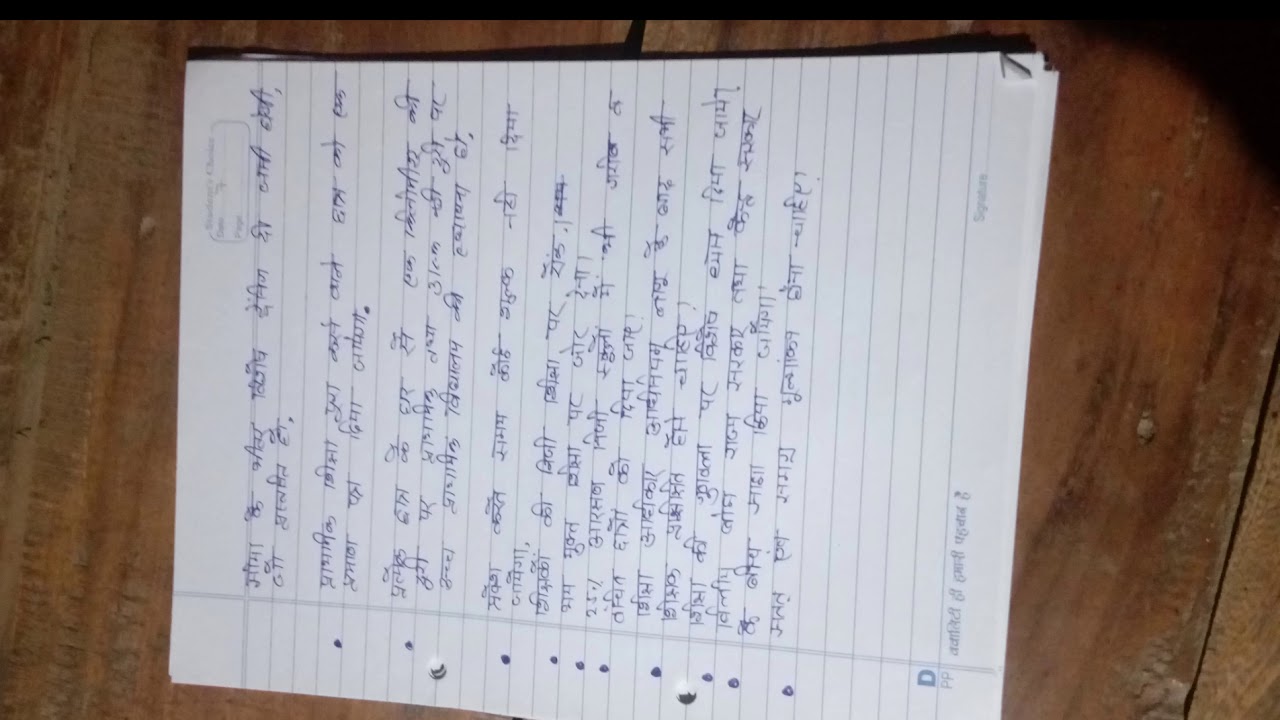 Date
Page 7
सीमा के भीतर विशेष ट्रेनिंग दी जानी होगी,
जो प्रस्तावित है,
प्राथमिक शिक्षा पूरा करने वाले छात्र को एक
प्रमाण पत्र दिया जायेगा.
प्रत्येक छात्र के घर से एक किलोमीटर की
दूरी पर प्राथमिक तथा उच्च की दूरी पर
उच्च प्राथमिक विद्यालय की स्थापना हो,
प्रवेश करते समय कोई शुल्क नही दिया
जायेगा,
शिक्षकों की निजी शिक्षा पर रोक.।
भय मुक्त शिक्षा पर जोर देना।
25% आरक्षण निजी स्कूलों में भी गरीब व
वंचित छात्रों को दिया जाए।
शिक्षा अधिकार अधिनियम लागू के बाद सभी
शिक्षक प्रशिक्षित होने चाहिए।
शिक्षा की गुणवत्ता पर विशेष ध्यान दिया जाये।
वित्तीय बोझ राज्य सरकार तथा केन्द्र सरकार
के बीच साझा किया जायेगा।
सतत् एवं समग्र मूल्यांकन होना चाहिए।
Signature
D
PP
क्वालिटी ही हमारी पहचान है